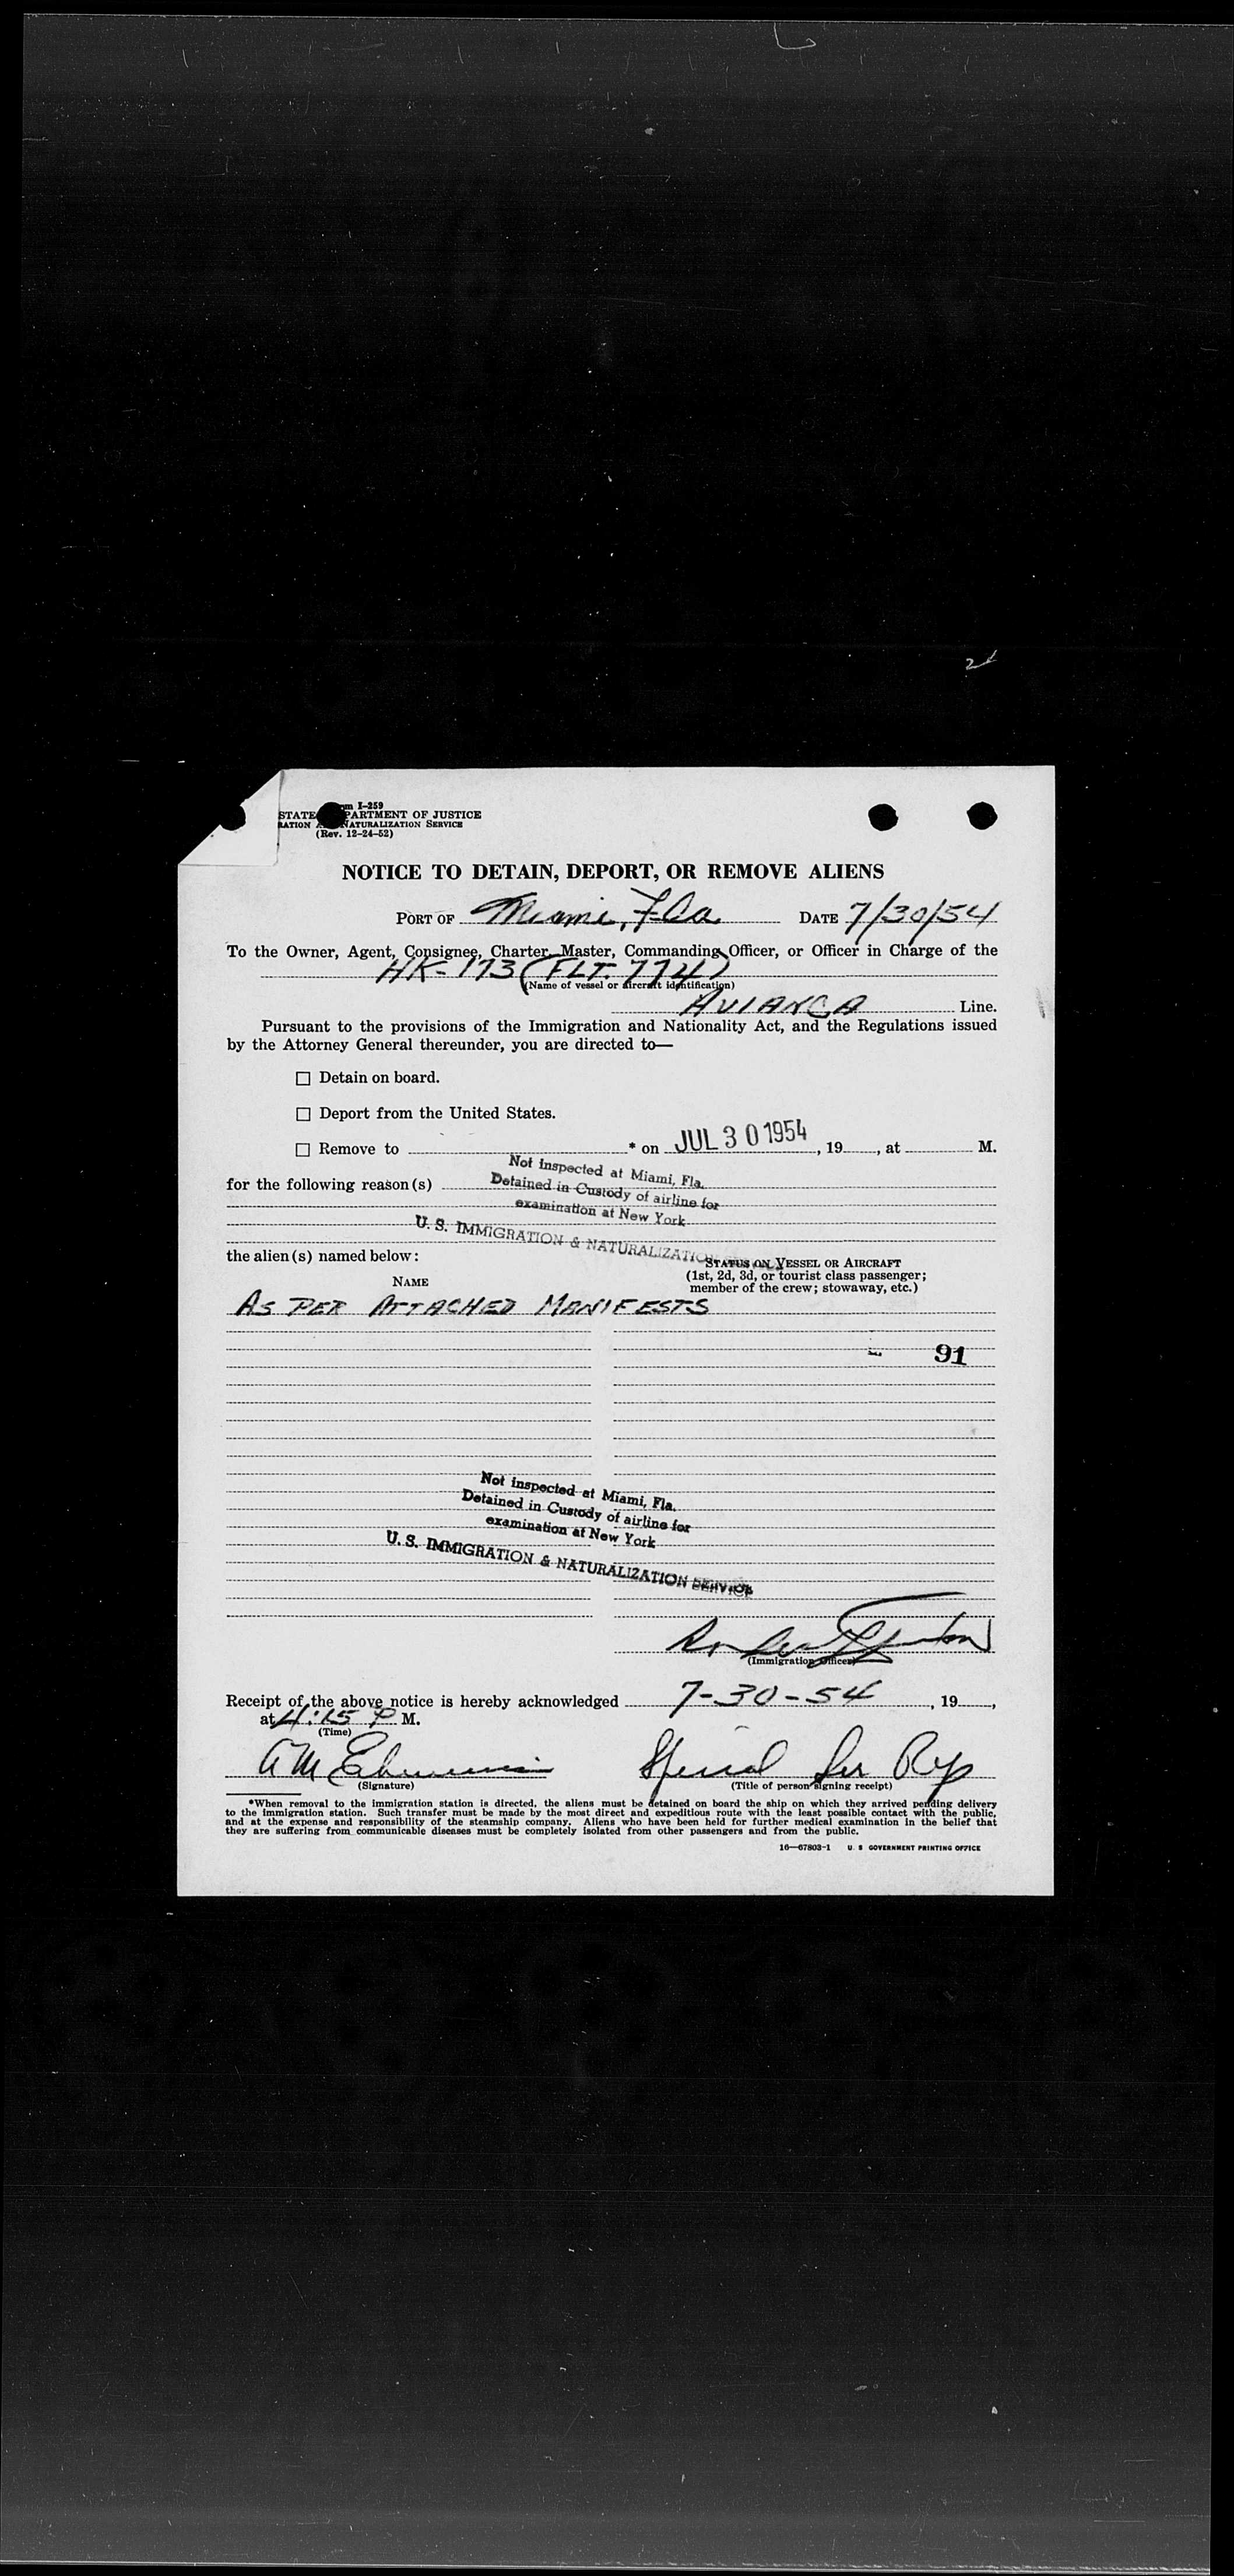 m I-259
STATE PARTMENT OF JUSTICE
RATION NATURALIZATION SERVICE
(Rev. 12-24-52)
NOTICE TO DETAIN, DEPORT, OR REMOVE ALIENS
PORT OF Miami, Fla DATE 7/30/54
To the Owner, Agent, Consignee, Charter, Master, Commanding Officer, or Officer in Charge of the
HK-173 (FLT. 774)
(Name of vessel or aircraft identification)
AVIANCA Line.
Pursuant to the provisions of the Immigration and Nationality Act, and the Regulations issued
by the Attorney General thereunder, you are directed to—
☐ Detain on board.
☐ Deport from the United States.
☐ Remove to * on JUL 30 1954, 19, at M.
Not inspected at Miami, Fla.
for the following reason(s) Detained in Custody of airline for
examination at New York
U. S. IMMIGRATION & NATURALIZATION
the alien(s) named below:
STATUS ON VESSEL OR AIRCRAFT
NAME (1st, 2d, 3d, or tourist class passenger;
member of the crew; stowaway, etc.)
AS PER ATTACHED MANIFESTS
91
Not inspected at Miami, Fla.
Detained in Custody of airline for
examination at New York
U. S. IMMIGRATION & NATURALIZATION SERVICE
(Immigration Officer)
Receipt of the above notice is hereby acknowledged 7-30-54, 19,
at 4:15 P M.
(Time)
A M Special Ser Rep
(Signature) (Title of person signing receipt)
*When removal to the immigration station is directed, the aliens must be detained on board the ship on which they arrived pending delivery
to the immigration station. Such transfer must be made by the most direct and expeditious route with the least possible contact with the public,
and at the expense and responsibility of the steamship company. Aliens who have been held for further medical examination in the belief that
they are suffering from communicable diseases must be completely isolated from other passengers and from the public.
16—67803-1 U. S. GOVERNMENT PRINTING OFFICE